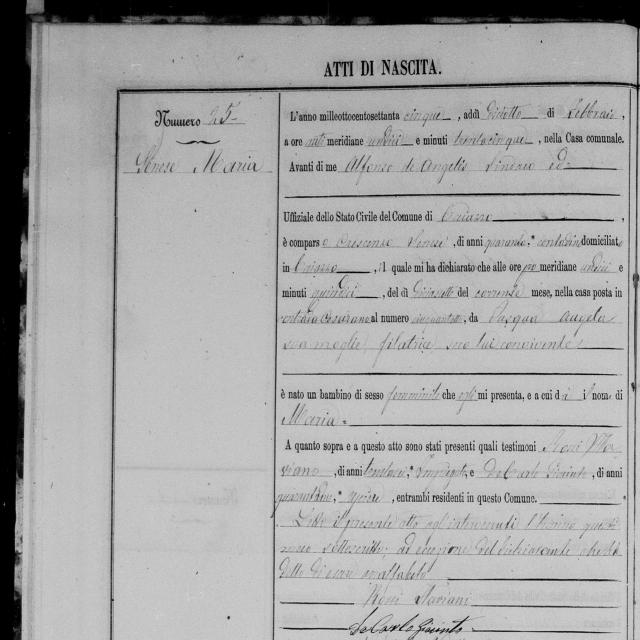 ATTI DI NASCITA.
Numero 25
Senese Maria
L'anno milleottocentosettanta cinque, addì diciotto di Febbraio,
a ore anti meridiane undici e minuti trentacinque, nella Casa comunale.
Avanti di me Alfonso de Angelis Sindaco ed
Uffiziale dello Stato Civile del Comune di Caiazzo,
è comparso Crescenzo Senese, di anni quaranta, contadino domiciliato
in Caiazzo, il quale mi ha dichiarato che alle ore pom meridiane undici e
minuti quindici, del dì diciassette del corrente mese, nella casa posta in
al numero, da Pasqua Angela
sua moglie, filatrice, seco lui convivente,
è nato un bambino di sesso femminile che egli mi presenta, e a cui dà il nome di
Maria.
A quanto sopra e a questo atto sono stati presenti quali testimoni
, di anni, e De Carlo Giacinto, di anni
, entrambi residenti in questo Comune.
Letto il presente atto agl'intervenuti l'hanno questi
meco sottoscritto, ad eccezione del dichiarante che ha
detto di essere analfabeta
De Carlo Giacinto